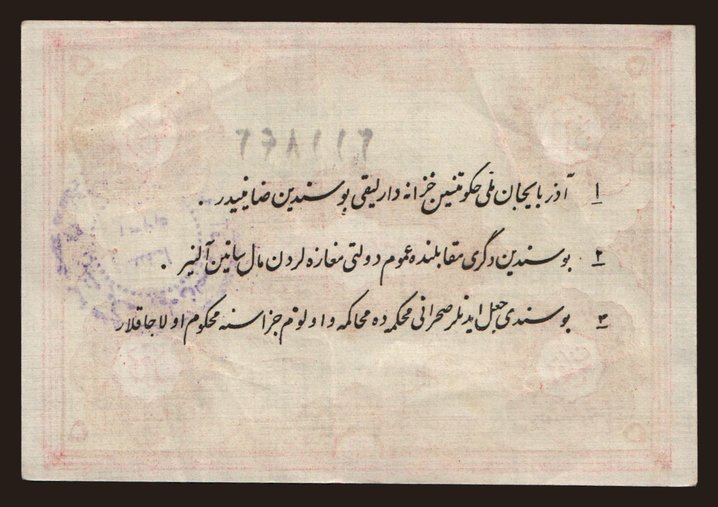 ۱ آذربایجان ملی حکومتنین خزانه دارلیقی بوسندین ضامنیدر.
۲ بوسندین دگری مقابلنده عموم دولتی مغازه لردن مال ساتین آلنیر.
۳ بوسندی جعل ایدنلر صحرائی محکمه ده محاکمه و اولوم جزاسنه محکوم اولاجاقلار